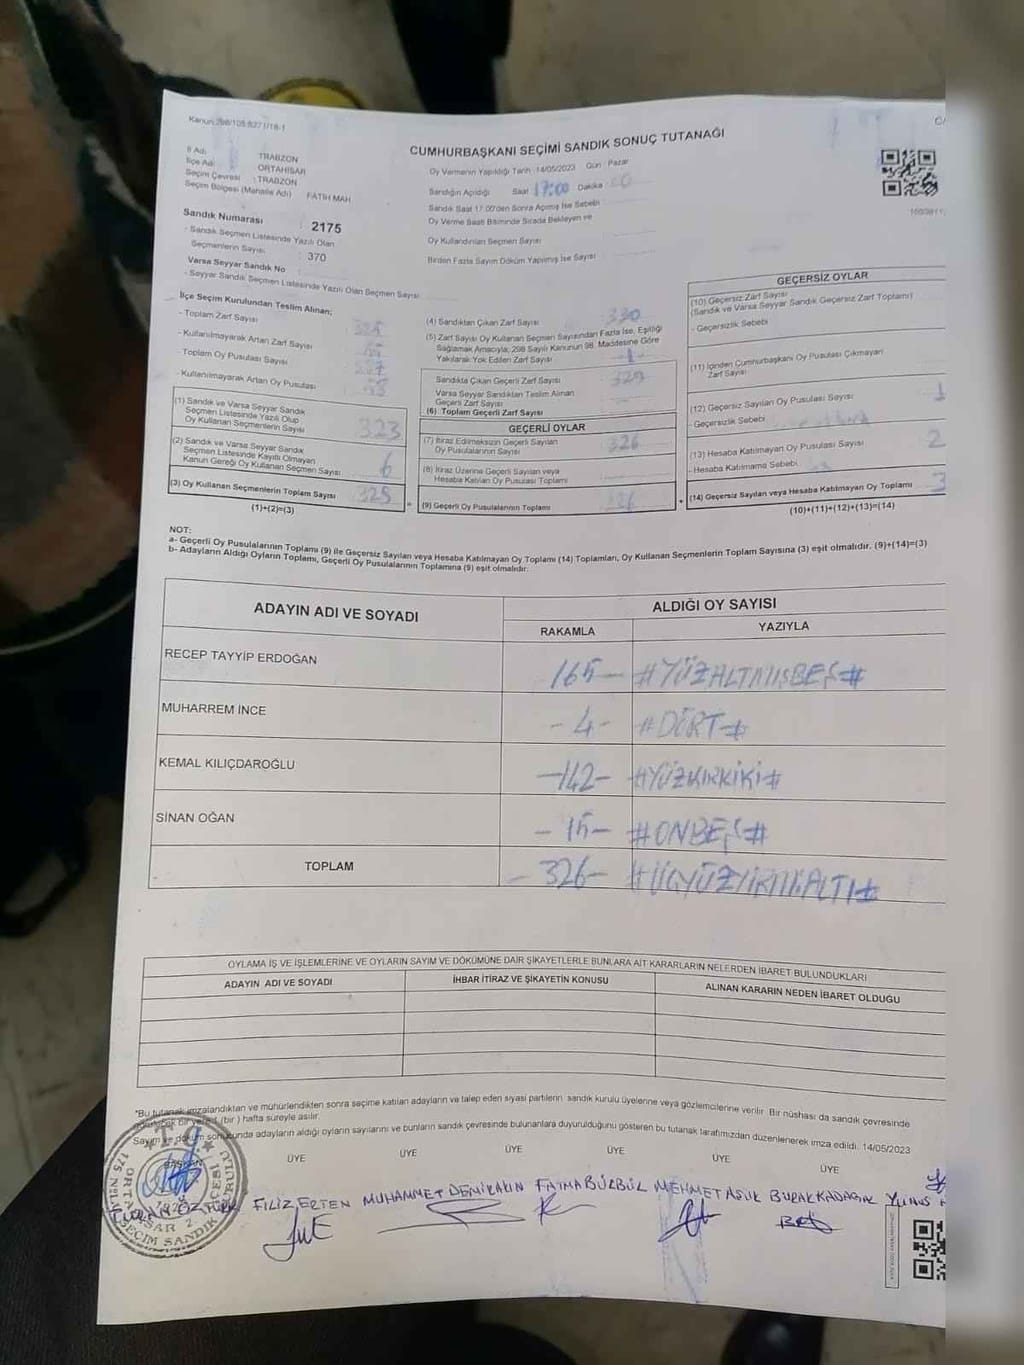 Kanun:298/105 6271/18-1
CUMHURBAŞKANI SEÇİMİ SANDIK SONUÇ TUTANAĞI
İl Adı : TRABZON
İlçe Adı : ORTAHİSAR
Seçim Çevresi : TRABZON
Seçim Bölgesi (Mahalle Adı) FATİH MAH
Oy Vermenin Yapıldığı Tarih :14/05/2023 Gün : Pazar
Sandığın Açıldığı Saat 17:00 Dakika 00
Sandık Saat 17:00'den Sonra Açılmış İse Sebebi
Oy Verme Saati Bitiminde Sırada Bekleyen ve
Oy Kullandırılan Seçmen Sayısı
Birden Fazla Sayım Döküm Yapılmış İse Sayısı
Sandık Numarası : 2175
- Sandık Seçmen Listesinde Yazılı Olan
Seçmenlerin Sayısı : 370
Varsa Seyyar Sandık No
- Seyyar Sandık Seçmen Listesinde Yazılı Olan Seçmen Sayısı
İlçe Seçim Kurulundan Teslim Alınan;
- Toplam Zarf Sayısı
- Kullanılmayarak Artan Zarf Sayısı
- Toplam Oy Pusulası Sayısı
- Kullanılmayarak Artan Oy Pusulası
(1) Sandık ve Varsa Seyyar Sandık
Seçmen Listesinde Yazılı Olup
Oy Kullanan Seçmenlerin Sayısı 323
(2) Sandık ve Varsa Seyyar Sandık
Seçmen Listesinde Kayıtlı Olmayan
Kanun Gereği Oy Kullanan Seçmen Sayısı 6
(3) Oy Kullanan Seçmenlerin Toplam Sayısı
(1)+(2)=(3)
(4) Sandıktan Çıkan Zarf Sayısı 330
(5) Zarf Sayısı Oy Kullanan Seçmen Sayısından Fazla İse, Eşitliği
Sağlamak Amacıyla; 298 Sayılı Kanunun 98. Maddesine Göre
Yakılarak Yok Edilen Zarf Sayısı 1
Sandıkta Çıkan Geçerli Zarf Sayısı 329
Varsa Seyyar Sandıktan Teslim Alınan
Geçerli Zarf Sayısı
(6) Toplam Geçerli Zarf Sayısı
GEÇERLİ OYLAR
(7) İtiraz Edilmeksizin Geçerli Sayılan
Oy Pusulalarının Sayısı 326
(8) İtiraz Üzerine Geçerli Sayılan veya
Hesaba Katılan Oy Pusulası Toplamı
(9) Geçerli Oy Pusulalarının Toplamı 326
GEÇERSİZ OYLAR
(10) Geçersiz Zarf Sayısı
(Sandık ve Varsa Seyyar Sandık Geçersiz Zarf Toplamı)
- Geçersizlik Sebebi
(11) İçinden Cumhurbaşkanı Oy Pusulası Çıkmayan
Zarf Sayısı
(12) Geçersiz Sayılan Oy Pusulası Sayısı 1
- Geçersizlik Sebebi
(13) Hesaba Katılmayan Oy Pusulası Sayısı 2
- Hesaba Katılmama Sebebi
(14) Geçersiz Sayılan veya Hesaba Katılmayan Oy Toplamı 3
(10)+(11)+(12)+(13)=(14)
NOT:
a- Geçerli Oy Pusulalarının Toplamı (9) ile Geçersiz Sayılan veya Hesaba Katılmayan Oy Toplamı (14) Toplamları, Oy Kullanan Seçmenlerin Toplam Sayısına (3) eşit olmalıdır. (9)+(14)=(3)
b- Adayların Aldığı Oyların Toplamı, Geçerli Oy Pusulalarının Toplamına (9) eşit olmalıdır.
ADAYIN ADI VE SOYADI ALDIĞI OY SAYISI
RAKAMLA YAZIYLA
RECEP TAYYİP ERDOĞAN 165- #YÜZALTMIŞBEŞ#
MUHARREM İNCE -4- #DÖRT#
KEMAL KILIÇDAROĞLU -142- #YÜZKIRKİKİ#
SİNAN OĞAN -15- #ONBEŞ#
TOPLAM -326- #ÜÇYÜZYİRMİALTI#
OYLAMA İŞ VE İŞLEMLERİNE VE OYLARIN SAYIM VE DÖKÜMÜNE DAİR ŞİKAYETLERLE BUNLARA AİT KARARLARIN NELERDEN İBARET BULUNDUKLARI
ADAYIN ADI VE SOYADI İHBAR İTİRAZ VE ŞİKAYETİN KONUSU ALINAN KARARIN NEDEN İBARET OLDUĞU
*Bu tutanak imzalandıktan ve mühürlendikten sonra seçime katılan adayların ve talep eden siyasi partilerin sandık kurulu üyelerine veya gözlemcilerine verilir. Bir nüshası da sandık çevresinde
görülebilir bir yere 1 (bir ) hafta süreyle asılır.
Sayım ve döküm sonucunda adayların aldığı oyların sayılarını ve bunların sandık çevresinde bulunanlara duyurulduğunu gösteren bu tutanak tarafımızdan düzenlenerek imza edildi. 14/05/2023
BAŞKAN ÜYE ÜYE ÜYE ÜYE ÜYE ÜYE
FİLİZ ERTEN MUHAMMET DEMİRAKIN FATMA BÜRBÜL MEHMET AŞIK BURAK KADAGİK YUNUS